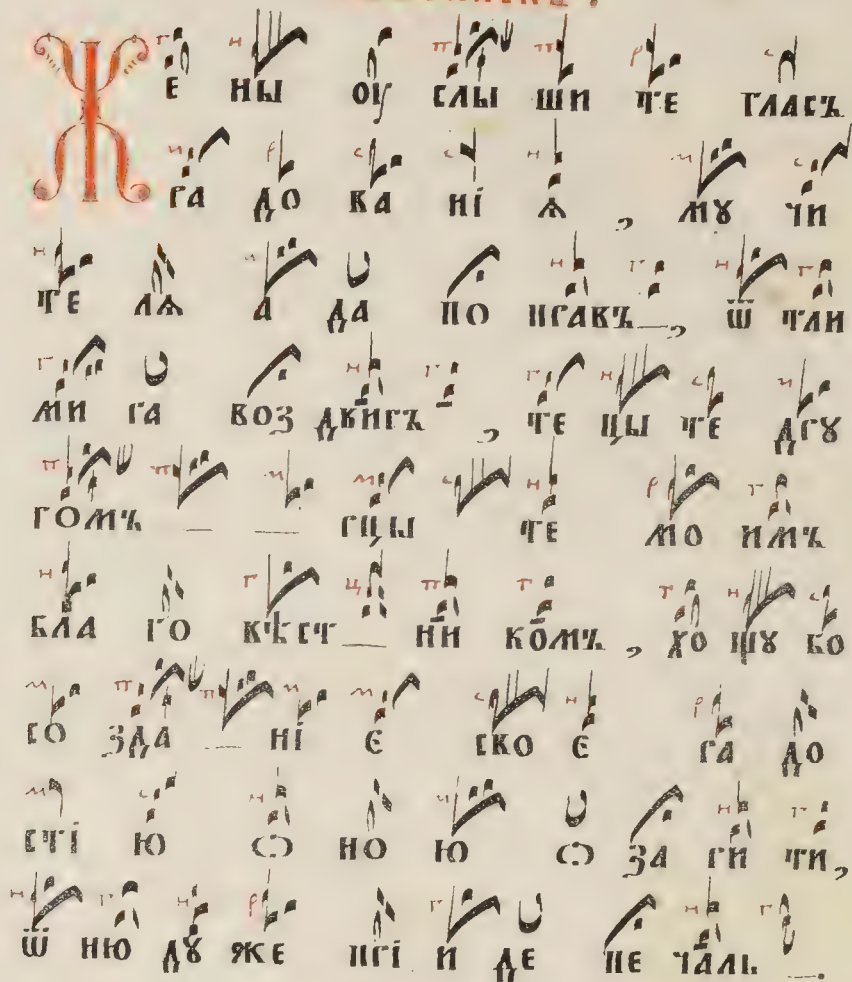 Ж Е НЫ ОУ СЛЫ ШИ ТЕ ГЛАСЪ
РА ДО ВА НІ Ѧ , МꙊ ЧИ
ТЕ ЛѦ А ДА ПО ПРАВЪ — , Ѿ ТЛИ
МИ РА ВОЗ ДВИГЪ , ТЕ ЦЫ ТЕ ДРꙊ
ГОМЪ — — РЦЫ ТЕ МО ИМЪ
БЛА ГО ВѢСТ — НИ КОМЪ , ХО ЩꙊ БО
СО ЗДА — НІ Е СВО Е РА ДО
СТІ Ю Ѡ НО Ю Ѡ ЗА РИ ТИ ,
Ѿ НЮ ДꙊ ЖЕ ПРІ И ДЕ ПЕ ЧАЛЬ — .